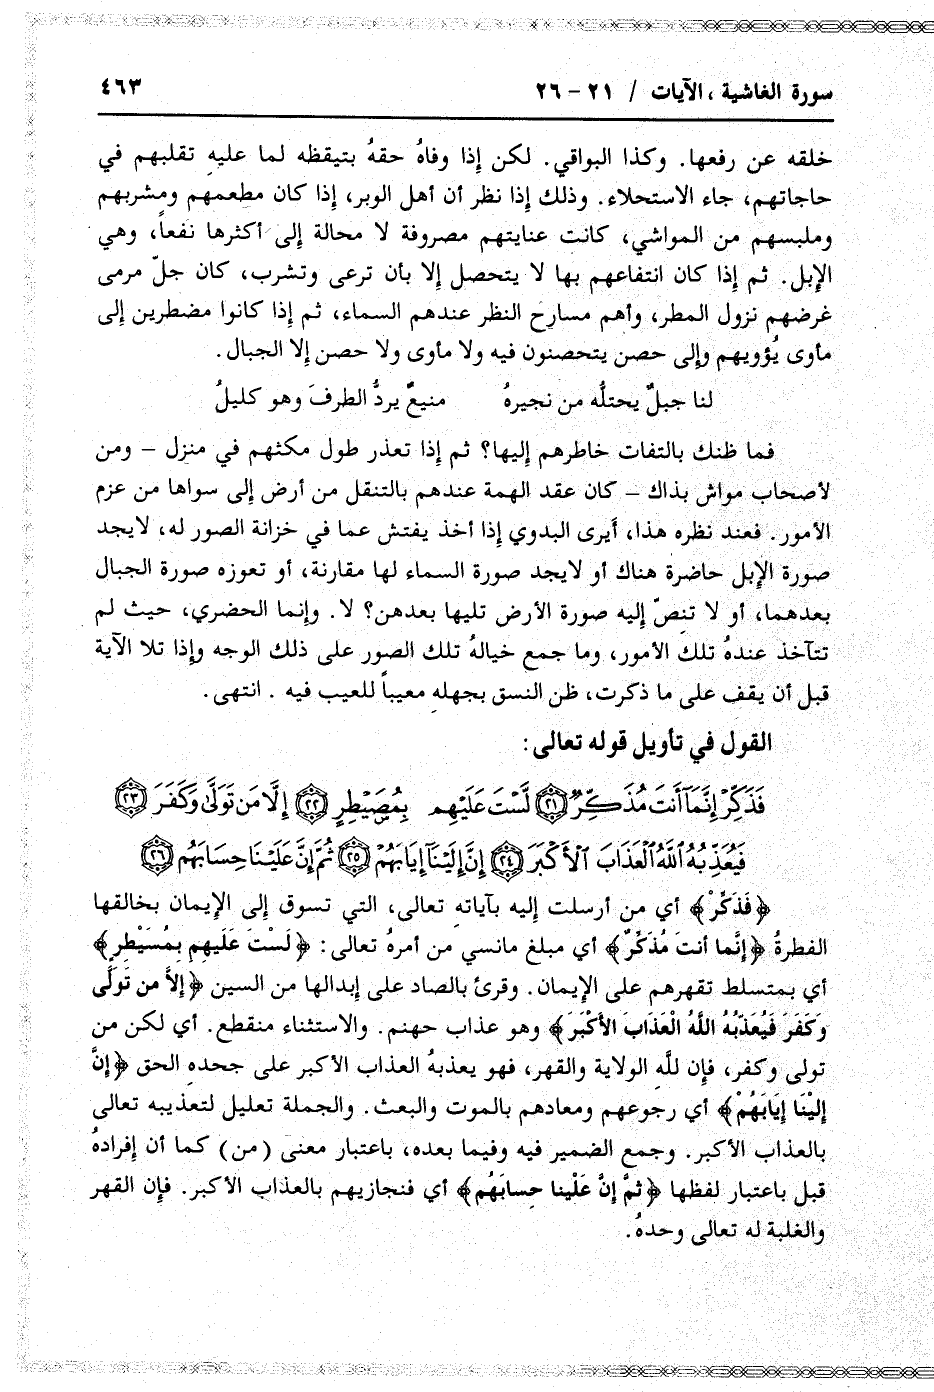 سورة الغاشية ، الآيات / ٢١ – ٢٦
٤٦٣
خلقه عن رفعها. وكذا البواقي. لكن إذا وفاهُ حقهُ بتيقظه لما عليه تقلبهم في
حاجاتهم، جاء الاستحلاء. وذلك إذا نظر أن أهل الوبر، إذا كان مطعمهم ومشربهم
وملبسهم من المواشي، كانت عنايتهم مصروفة لا محالة إلى أكثرها نفعاً، وهي
الإبل. ثم إذا كان انتفاعهم بها لا يتحصل إلا بأن ترعى وتشرب، كان جلّ مرمى
غرضهم نزول المطر، وأهم مسارح النظر عندهم السماء، ثم إذا كانوا مضطرين إلى
مأوى يُؤويهم وإلى حصن يتحصنون فيه ولا مأوى ولا حصن إلا الجبال.
لنا جبلٌ يحتلُّه من نجيرهُ منيعٌ يردُّ الطرفَ وهو كليلُ
فما ظنك بالتفات خاطرهم إليها؟ ثم إذا تعذر طول مكثهم في منزل – ومن
لأصحاب مواش بذاك – كان عقد الهمة عندهم بالتنقل من أرض إلى سواها من عزم
الأمور. فعند نظره هذا، أيرى البدوي إذا أخذ يفتش عما في خزانة الصور له، لايجد
صورة الإبل حاضرة هناك أو لايجد صورة السماء لها مقارنة، أو تعوزه صورة الجبال
بعدهما، أو لا تنصّ إليه صورة الأرض تليها بعدهن؟ لا. وإنما الحضري، حيث لم
تتآخذ عندهُ تلك الأمور، وما جمع خيالهُ تلك الصور على ذلك الوجه وإذا تلا الآية
قبل أن يقف على ما ذكرت، ظن النسق بجهلهِ معيباً للعيب فيه . انتهى.
القول في تأويل قوله تعالى:
فَذَكِّرْ إِنَّمَآ أَنتَ مُذَكِّرٌ ﴿٢١﴾ لَّسْتَ عَلَيْهِم بِمُصَيْطِرٍ ﴿٢٢﴾ إِلَّا مَن تَوَلَّىٰ وَكَفَرَ ﴿٢٣﴾
فَيُعَذِّبُهُ ٱللَّهُ ٱلْعَذَابَ ٱلْأَكْبَرَ ﴿٢٤﴾ إِنَّ إِلَيْنَآ إِيَابَهُمْ ﴿٢٥﴾ ثُمَّ إِنَّ عَلَيْنَا حِسَابَهُم ﴿٢٦﴾
﴿فَذَكِّرْ﴾ أي من أرسلت إليه بآياته تعالى، التي تسوق إلى الإيمان بخالقها
الفطرةُ ﴿إِنَّما أنتَ مُذَكِّرٌ﴾ أي مبلغ مانسي من أمرهُ تعالى: ﴿لَسْتَ عَلَيهِم بِمُسَيْطِرٍ﴾
أي بمتسلط تقهرهم على الإيمان. وقرئ بالصاد على إبدالها من السين ﴿إلاَّ من تَولَّى
وَكَفَرَ فَيُعَذّبُهُ اللَّهُ الْعَذَابَ الأَكْبَرَ﴾ وهو عذاب جهنم. والاستثناء منقطع. أي لكن من
تولى وكفر، فإن للَّهِ الولاية والقهر، فهو يعذبهُ العذاب الأكبر على جحده الحق ﴿إِنَّ
إلَيْنَا إيَابَهُمْ﴾ أي رجوعهم ومعادهم بالموت والبعث. والجملة تعليل لتعذيبه تعالى
بالعذاب الأكبر. وجمع الضمير فيه وفيما بعده، باعتبار معنى (من) كما أن إفرادهُ
قبل باعتبار لفظها ﴿ثمَّ إنَّ عَلَيْنا حِسابَهُم﴾ أي فنجازيهم بالعذاب الأكبر. فإن القهر
والغلبة له تعالى وحدهُ.